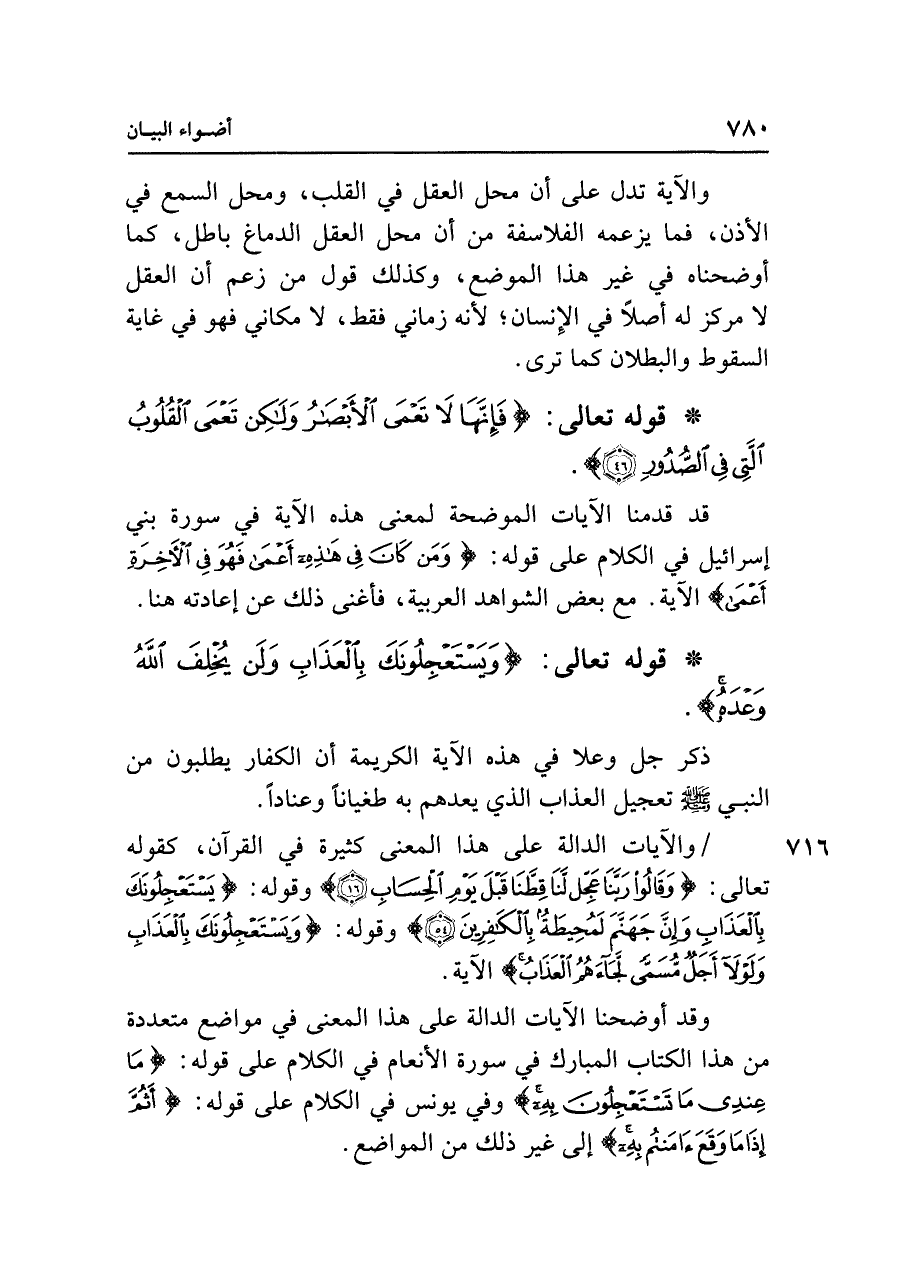 ٧٨٠ أضـواء البيـان
والآية تدل على أن محل العقل في القلب، ومحل السمع في
الأذن، فما يزعمه الفلاسفة من أن محل العقل الدماغ باطل، كما
أوضحناه في غير هذا الموضع، وكذلك قول من زعم أن العقل
لا مركز له أصلاً في الإنسان؛ لأنه زماني فقط، لا مكاني فهو في غاية
السقوط والبطلان كما ترى.
* قوله تعالى: ﴿ فَإِنَّهَا لَا تَعْمَى ٱلْأَبْصَٰرُ وَلَٰكِن تَعْمَى ٱلْقُلُوبُ
ٱلَّتِي فِي ٱلصُّدُورِ ٤٦﴾.
قد قدمنا الآيات الموضحة لمعنى هذه الآية في سورة بني
إسرائيل في الكلام على قوله: ﴿ وَمَن كَانَ فِي هَٰذِهِۦٓ أَعْمَىٰ فَهُوَ فِي ٱلْأَخِرَةِ
أَعْمَىٰ﴾ الآية. مع بعض الشواهد العربية، فأغنى ذلك عن إعادته هنا.
* قوله تعالى: ﴿وَيَسْتَعْجِلُونَكَ بِٱلْعَذَابِ وَلَن يُخْلِفَ ٱللَّهُ
وَعْدَهُۥۚ﴾.
ذكر جل وعلا في هذه الآية الكريمة أن الكفار يطلبون من
النبـي ﷺ تعجيل العذاب الذي يعدهم به طغياناً وعناداً.
/ والآيات الدالة على هذا المعنى كثيرة في القرآن، كقوله ٧١٦
تعالى: ﴿ وَقَالُواْ رَبَّنَا عَجِّل لَّنَا قِطَّنَا قَبْلَ يَوْمِ ٱلْحِسَابِ ١٦﴾ وقوله: ﴿ يَسْتَعْجِلُونَكَ
بِٱلْعَذَابِ وَإِنَّ جَهَنَّمَ لَمُحِيطَةُۢ بِٱلْكَٰفِرِينَ ٥٤﴾ وقوله: ﴿وَيَسْتَعْجِلُونَكَ بِٱلْعَذَابِ
وَلَوْلَآ أَجَلٌ مُّسَمًّى لَّجَآءَهُمُ ٱلْعَذَابُۚ﴾ الآية.
وقد أوضحنا الآيات الدالة على هذا المعنى في مواضع متعددة
من هذا الكتاب المبارك في سورة الأنعام في الكلام على قوله: ﴿ مَا
عِندِى مَا تَسْتَعْجِلُونَ بِهِۦٓۚ﴾ وفي يونس في الكلام على قوله: ﴿ أَثُمَّ
إِذَا مَا وَقَعَ ءَامَنتُم بِهِۦٓۚ﴾ إلى غير ذلك من المواضع.